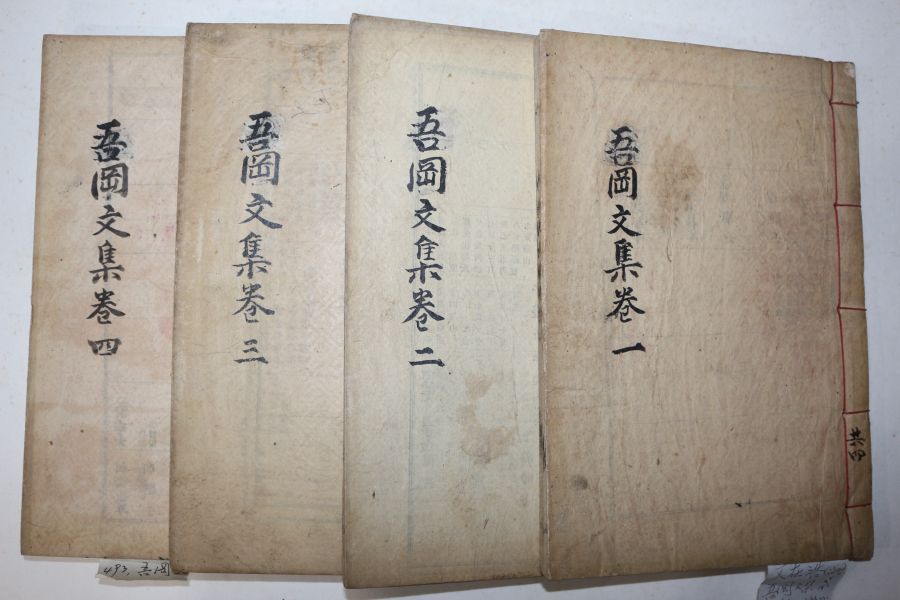 吾岡文集卷一
共四
吾岡文集卷二
吾岡文集卷三
吾岡文集卷四
493. 吾岡